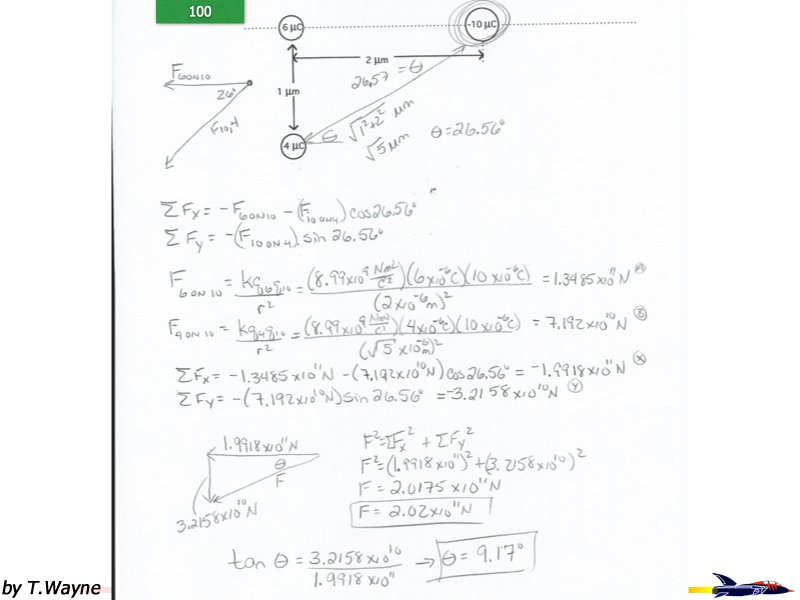 100
6 μC
-10 μC
2 μm
F6ON10
26.57 = θ
26°
1 μm
F10,4
θ
√1²+2² μm
√5 μm
θ=26.56°
4 μC
ΣFx = -F6ON10 - (F10ON4) cos26.56°
ΣFy = -(F10ON4) sin 26.56°
F6ON10 = kq6q10/r² = (8.99x10⁹ Nm²/C²)(6x10⁻⁶C)(10x10⁻⁶C)/(2x10⁻⁶m)² = 1.3485x10¹¹N A
F4ON10 = kq4q10/r² = (8.99x10⁹ Nm²/C²)(4x10⁻⁶C)(10x10⁻⁶C)/(√5 x10⁻⁶m)² = 7.192x10¹⁰N B
ΣFx = -1.3485x10¹¹N -(7.192x10¹⁰N)cos26.56° = -1.9918x10¹¹N X
ΣFy = -(7.192x10¹⁰N)sin 26.56° = -3.2158x10¹⁰N Y
1.9918x10¹¹N
θ
F
3.2158x10¹⁰N
F²=ΣFx² + ΣFy²
F²=(1.9918x10¹¹)²+(3.2158x10¹⁰)²
F = 2.0175x10¹¹N
F = 2.02x10¹¹N
tan θ = 3.2158x10¹⁰/1.9918x10¹¹ → θ = 9.17°
by T.Wayne